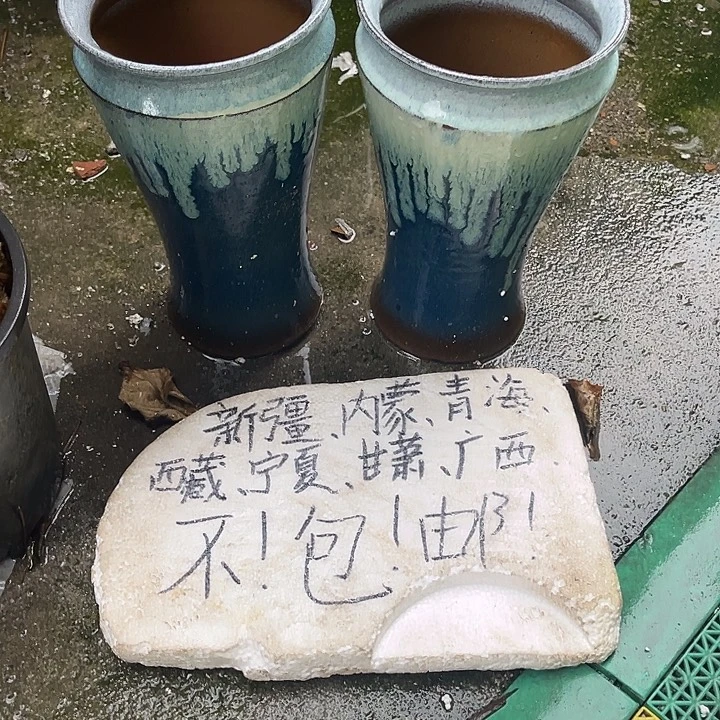 新疆、内蒙、青海、
西藏、宁夏、甘萧、广西、
不！包！邮！